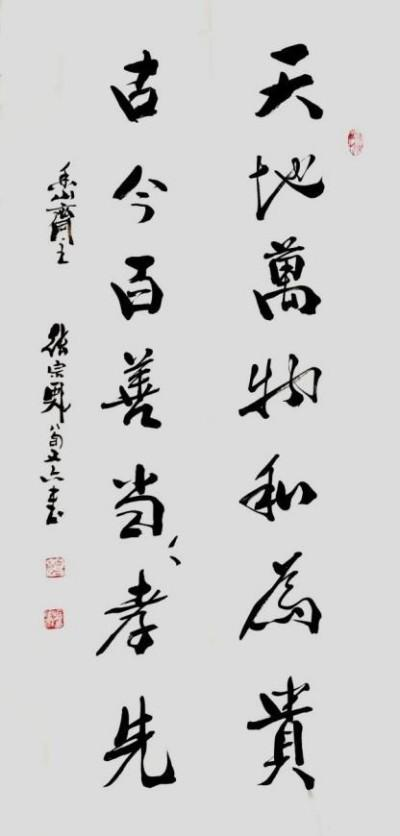 天地萬物和為貴
古今百善当孝先
山齋主 張宗 八旬又六書